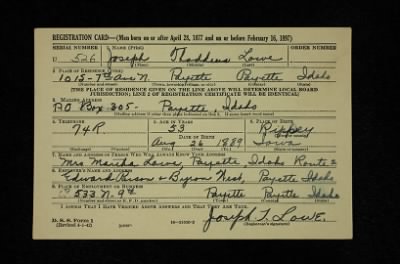 REGISTRATION CARD—(Men born on or after April 28, 1877 and on or before February 16, 1897)
SERIAL NUMBER 1. NAME (Print) ORDER NUMBER
U 526 Joseph Thaddeus Lowe
(First) (Middle) (Last)
2. PLACE OF RESIDENCE (Print)
1015-7th Ave N. Payette Payette Idaho
(Number and street) (Town, township, village, or city) (County) (State)
[THE PLACE OF RESIDENCE GIVEN ON THE LINE ABOVE WILL DETERMINE LOCAL BOARD
JURISDICTION; LINE 2 OF REGISTRATION CERTIFICATE WILL BE IDENTICAL]
3. MAILING ADDRESS
P.O. Box 305- Payette, Idaho
(Mailing address if other than place indicated on line 2. If same insert word same)
4. TELEPHONE 5. AGE IN YEARS 6. PLACE OF BIRTH
74R. 53 Rippey
DATE OF BIRTH
Aug 26 1889 Iowa
(Mo.) (Day) (Yr.)
7. NAME AND ADDRESS OF PERSON WHO WILL ALWAYS KNOW YOUR ADDRESS
Mrs Martha Payette, Idaho Route 2
8. EMPLOYER'S NAME AND ADDRESS
Edward & Byron Payette Idaho
9. PLACE OF EMPLOYMENT OR BUSINESS
533 N. 9th Payette Payette Idaho
(Number and street or R. F. D. number) (Town) (County) (State)
I AFFIRM THAT I HAVE VERIFIED ABOVE ANSWERS AND THAT THEY ARE TRUE.
D. S. S. Form 1
(Revised 4-1-42) (over) 16—21630-2 Joseph T. Lowe.
(Registrant's signature)